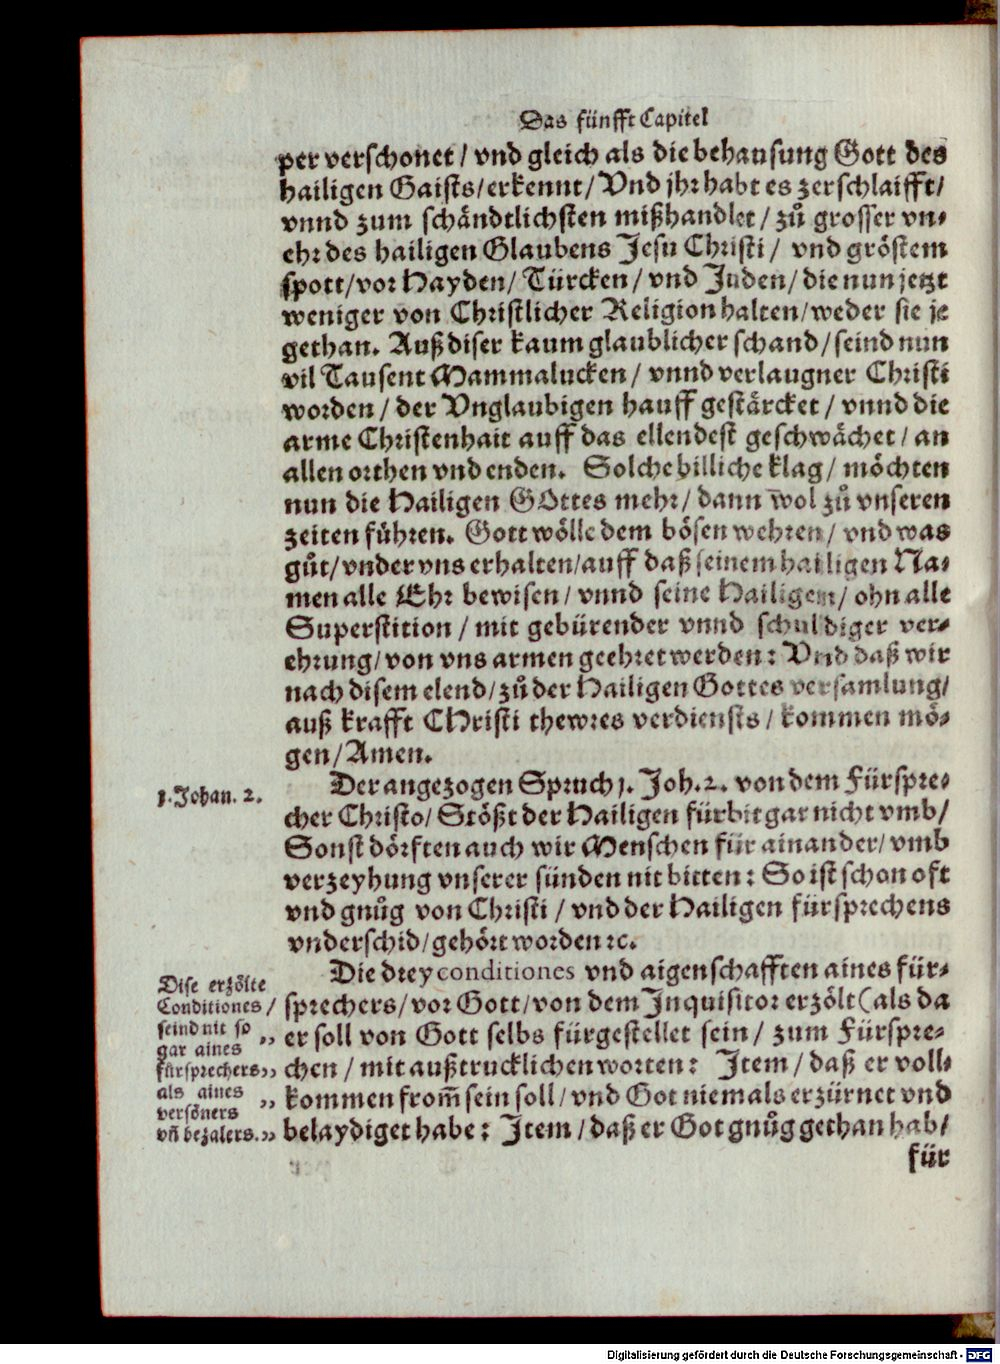 Das fünfft Capitel
per verschonet / vnd gleich als die behausung Gott des
hailigen Gaists/erkennt/Vnd jhr habt es zerschlaifft/
vnnd zum schändtlichsten mißhandlet / zů grosser vn-
ehr des hailigen Glaubens Jesu Christi / vnd gröstem
spott/vor Hayden/ Türcken / vnd Juden/ die nun jetzt
weniger von Christlicher Religion halten/weder sie je
gethan. Auß diser kaum glaublicher schand/ seind nun
vil Tausent Mammalucken / vnnd verlaugner Christi
worden / der Vnglaubigen hauff gestärcket / vnnd die
arme Christenhait auff das ellendest geschwächet / an
allen orthen vnd enden. Solche billiche klag/ möchten
nun die Hailigen GOttes mehr/ dann wol zů vnseren
zeiten führen. Gott wölle dem bösen wehren/ vnd was
gůt/vnder vns erhalten/auff daß seinem hailigen Na-
men alle Ehr bewisen/ vnnd seine Hailigen/ ohn alle
Superstition / mit gebürender vnnd schuldiger ver-
ehrung/von vns armen geehret werden: Vnd daß wir
nach disem elend/ zů der Hailigen Gottes versamlung/
auß krafft CHristi thewres verdiensts / kommen mö-
gen/Amen.
1. Johan. 2.
Der angezogen Spruch 1. Joh. 2. von dem Fürspre-
cher Christo/ Stößt der Hailigen fürbit gar nicht vmb/
Sonst dörften auch wir Menschen für ainander/ vmb
verzeyhung vnserer sünden nit bitten: So ist schon oft
vnd gnůg von Christi / vnd der Hailigen fürsprechens
vnderschid/gehört worden ꝛc.
Dise erzölte
Conditiones /
seind nit so „
gar aines
fürsprechers„
als aines „
versöners
vñ bezalers.„
Die drey conditiones vnd aigenschafften aines für-
sprechers/ vor Gott/ von dem Inquisitor erzölt (als da
er soll von Gott selbs fürgestellet sein / zum Fürspre-
chen / mit außtrucklichen worten: Item/ daß er voll-
kommen from̃ sein soll / vnd Got niemals erzürnet vnd
belaydiget habe: Item / daß er Got gnůg gethan hab/
für
Digitalisierung gefördert durch die Deutsche Forschungsgemeinschaft - DFG